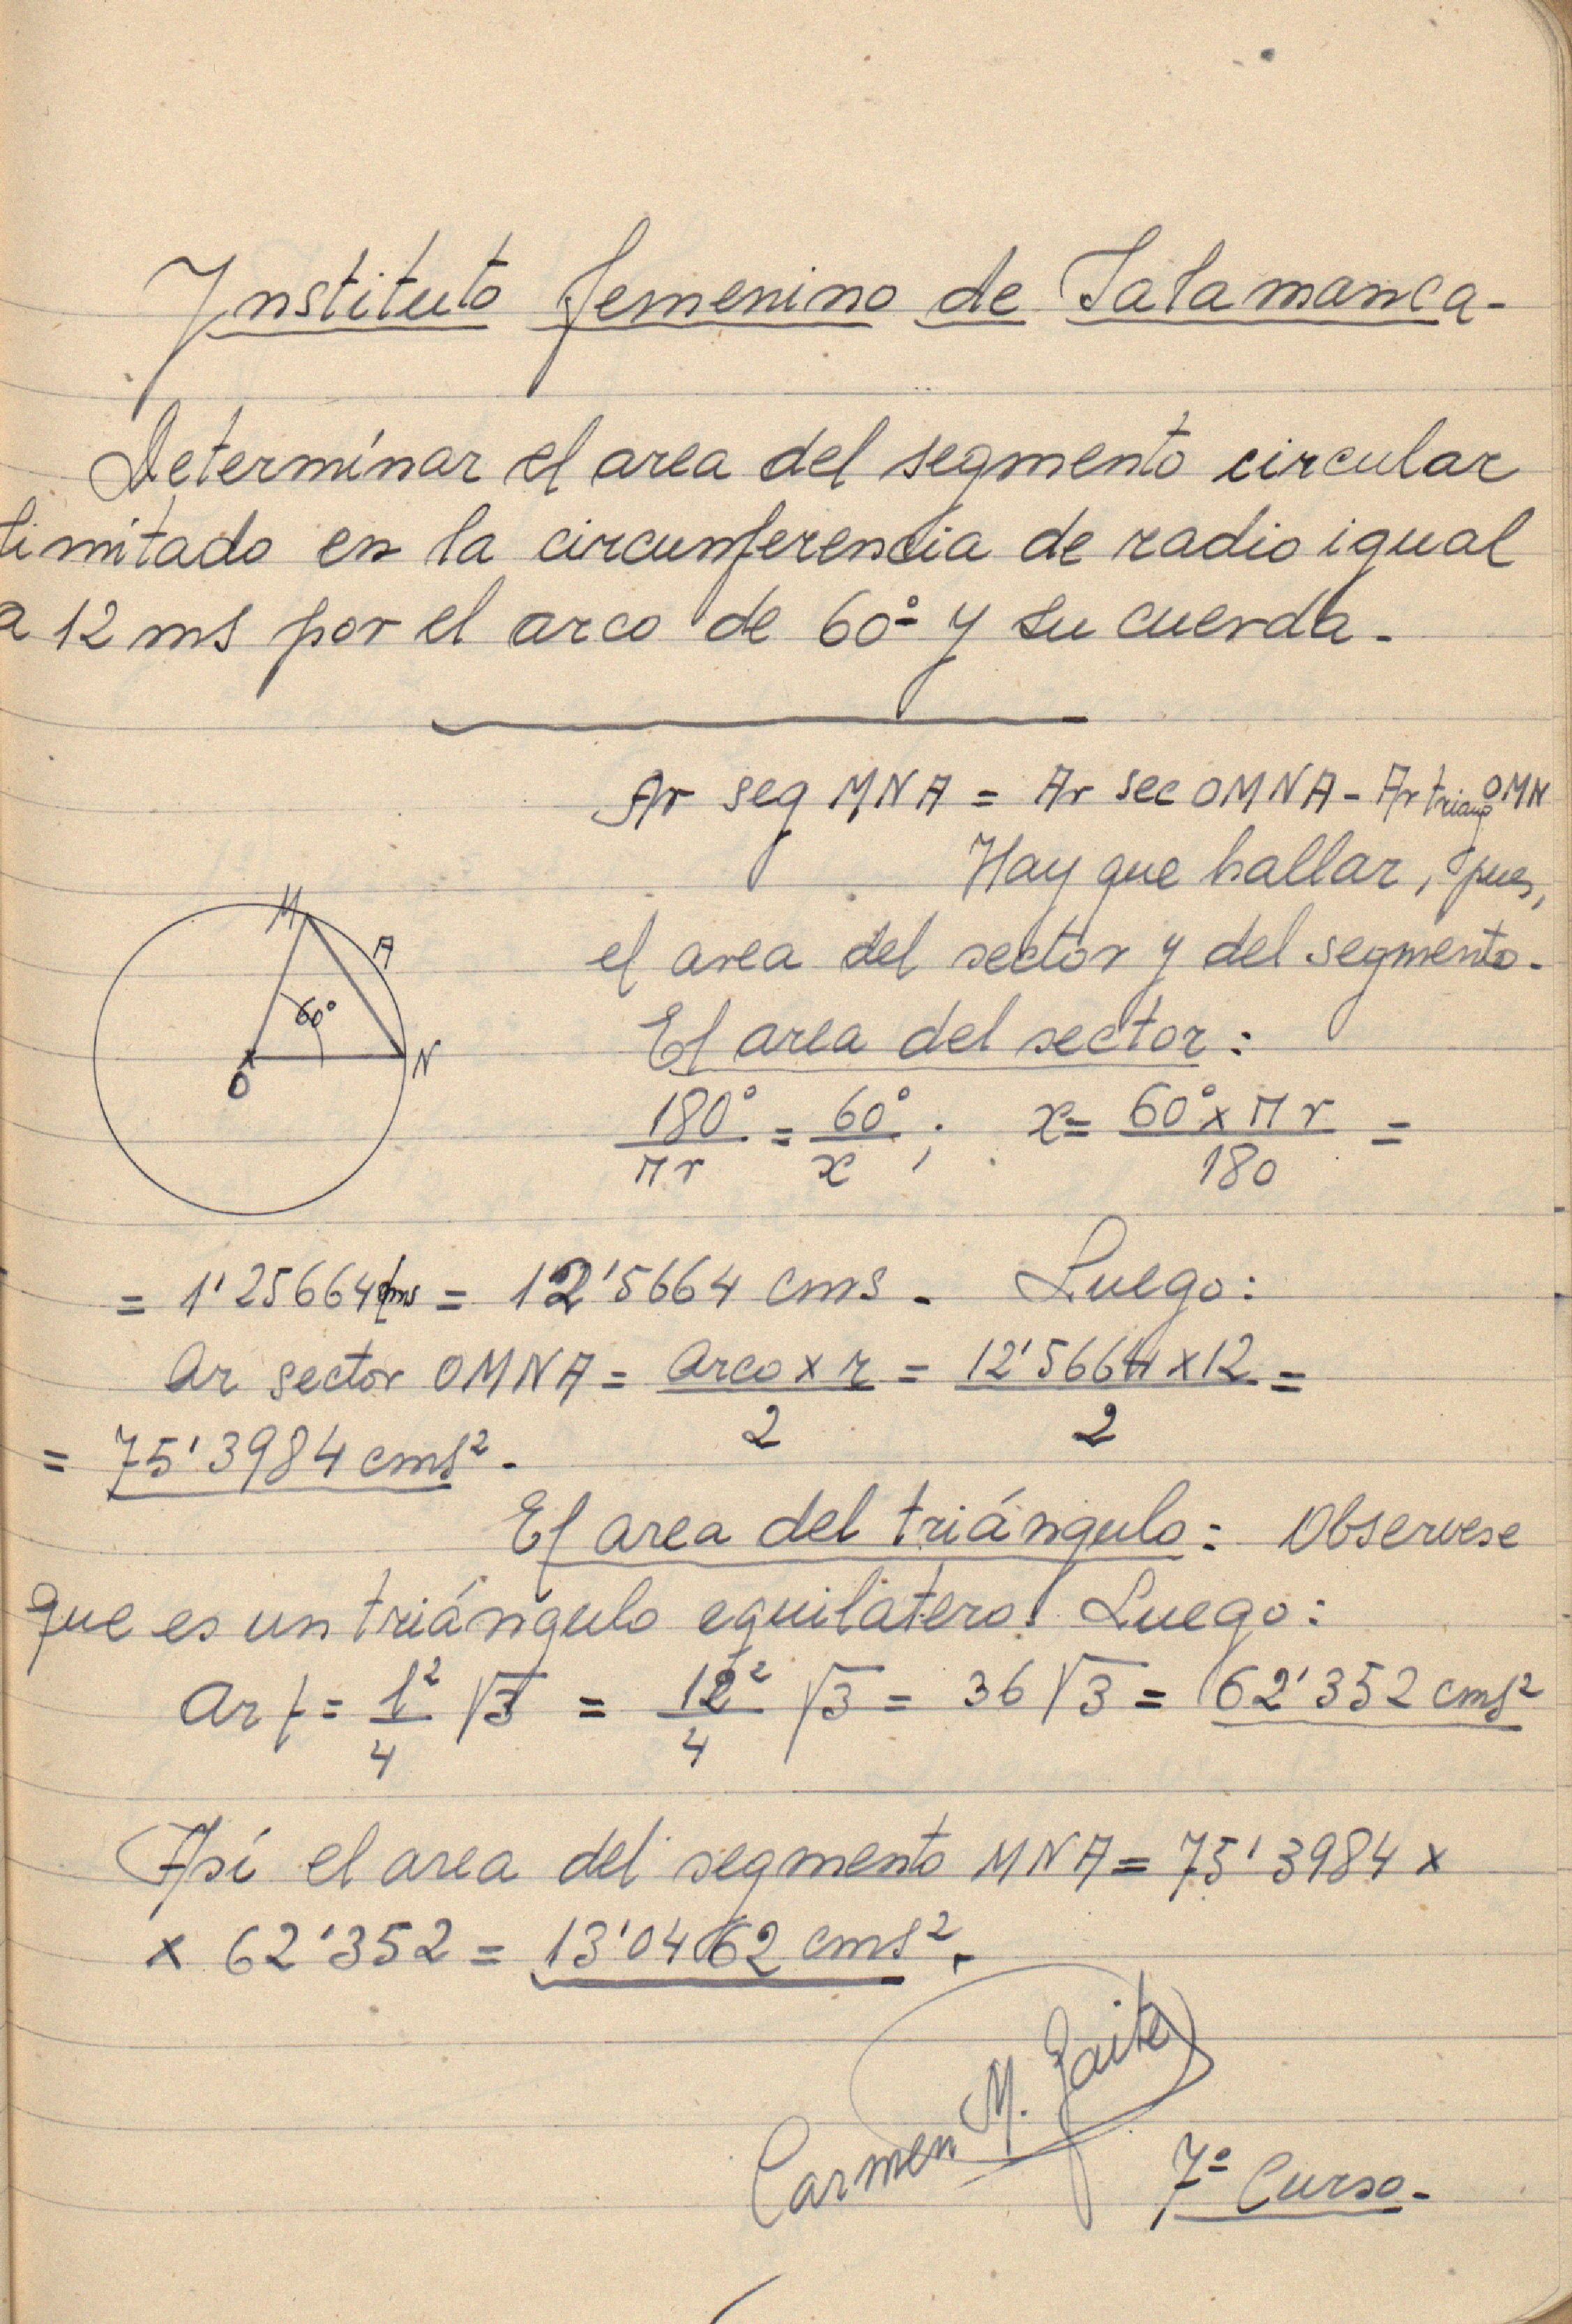 Instituto femenino de Salamanca-
Determínar el area del segmento circular
limitado en la circunferencia de radio igual
a 12 ms por el arco de 60º y su cuerda.
Ar seg MNA = Ar sec OMNA - Ar triang OMN
Hay que hallar, pues,
el area del sector y del segmento.
M
A
60°
O
N
El area del sector:
180°/πr = 60°/x ; x = 60° x πr/180 =
= 1'25664 dms = 12'5664 cms. Luego:
Ar sector OMNA = arco x r/2 = 12'5664 x 12/2 =
= 75'3984 cms².
El area del triángulo: Observese
que es un triángulo equilatero. Luego:
Ar t = l²/4 √3 = 12²/4 √3 = 36√3 = 62'352 cms²
Así el area del segmento MNA = 75'3984 x
x 62'352 = 13'0462 cms².
Carmen M.
7º Curso.